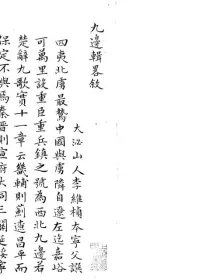 九邊輯畧敘
大泌山人李維楨本寧父譔
四夷北虜最驁中國與虜障自遼左迄嘉峪
可萬里設重臣重兵鎮之號為西北九邊若
楚辭九歌實十一章云畿輔則薊遼昌平而
保定不與焉秦晉則宣府大同三關延綏寧